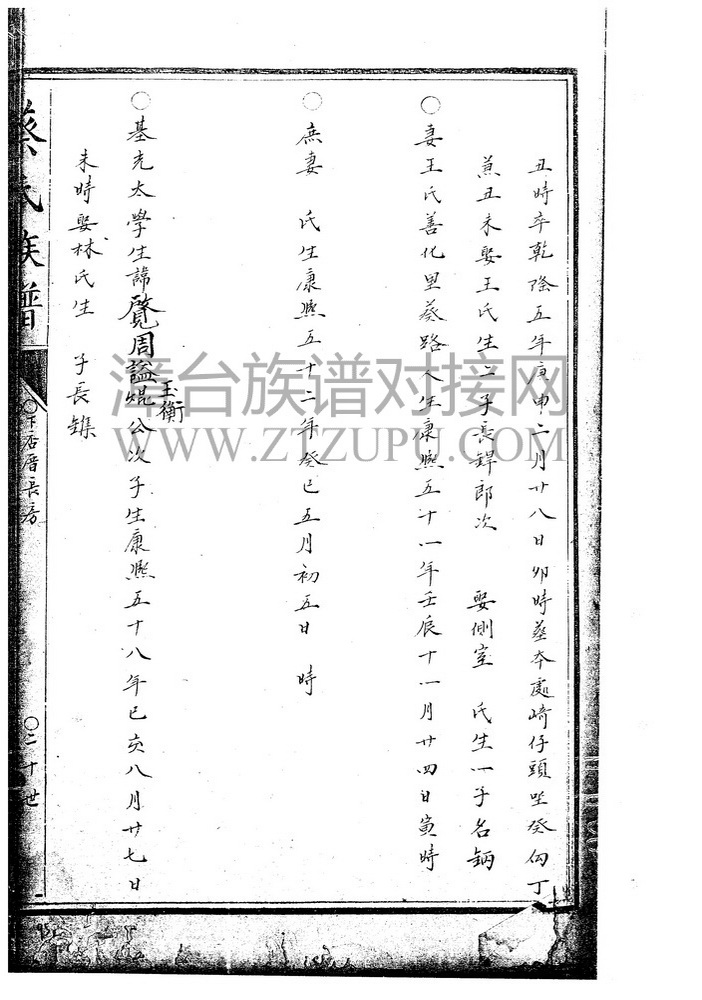 丑時卒乾隆五年庚申二月廿八日卯時葬本處崎仔頭坐癸向丁
兼丑未娶王氏生二子長銲郎次 娶側室 氏生一子名鈵
〇妻王氏善化里葵路人生康熙五十一年壬辰十一月廿四日寅時
〇庶妻 氏生康熙五十二年癸巳五月初五日 時
〇基先太學生諱覽周謚焜公次子生康熙五十八年己亥八月廿七日
玉衡
未時娶林氏生 子長鏶
蔡氏族譜
〇下店厝長房
〇二十世
漳台族谱对接网
WWW.ZTZUPU.COM